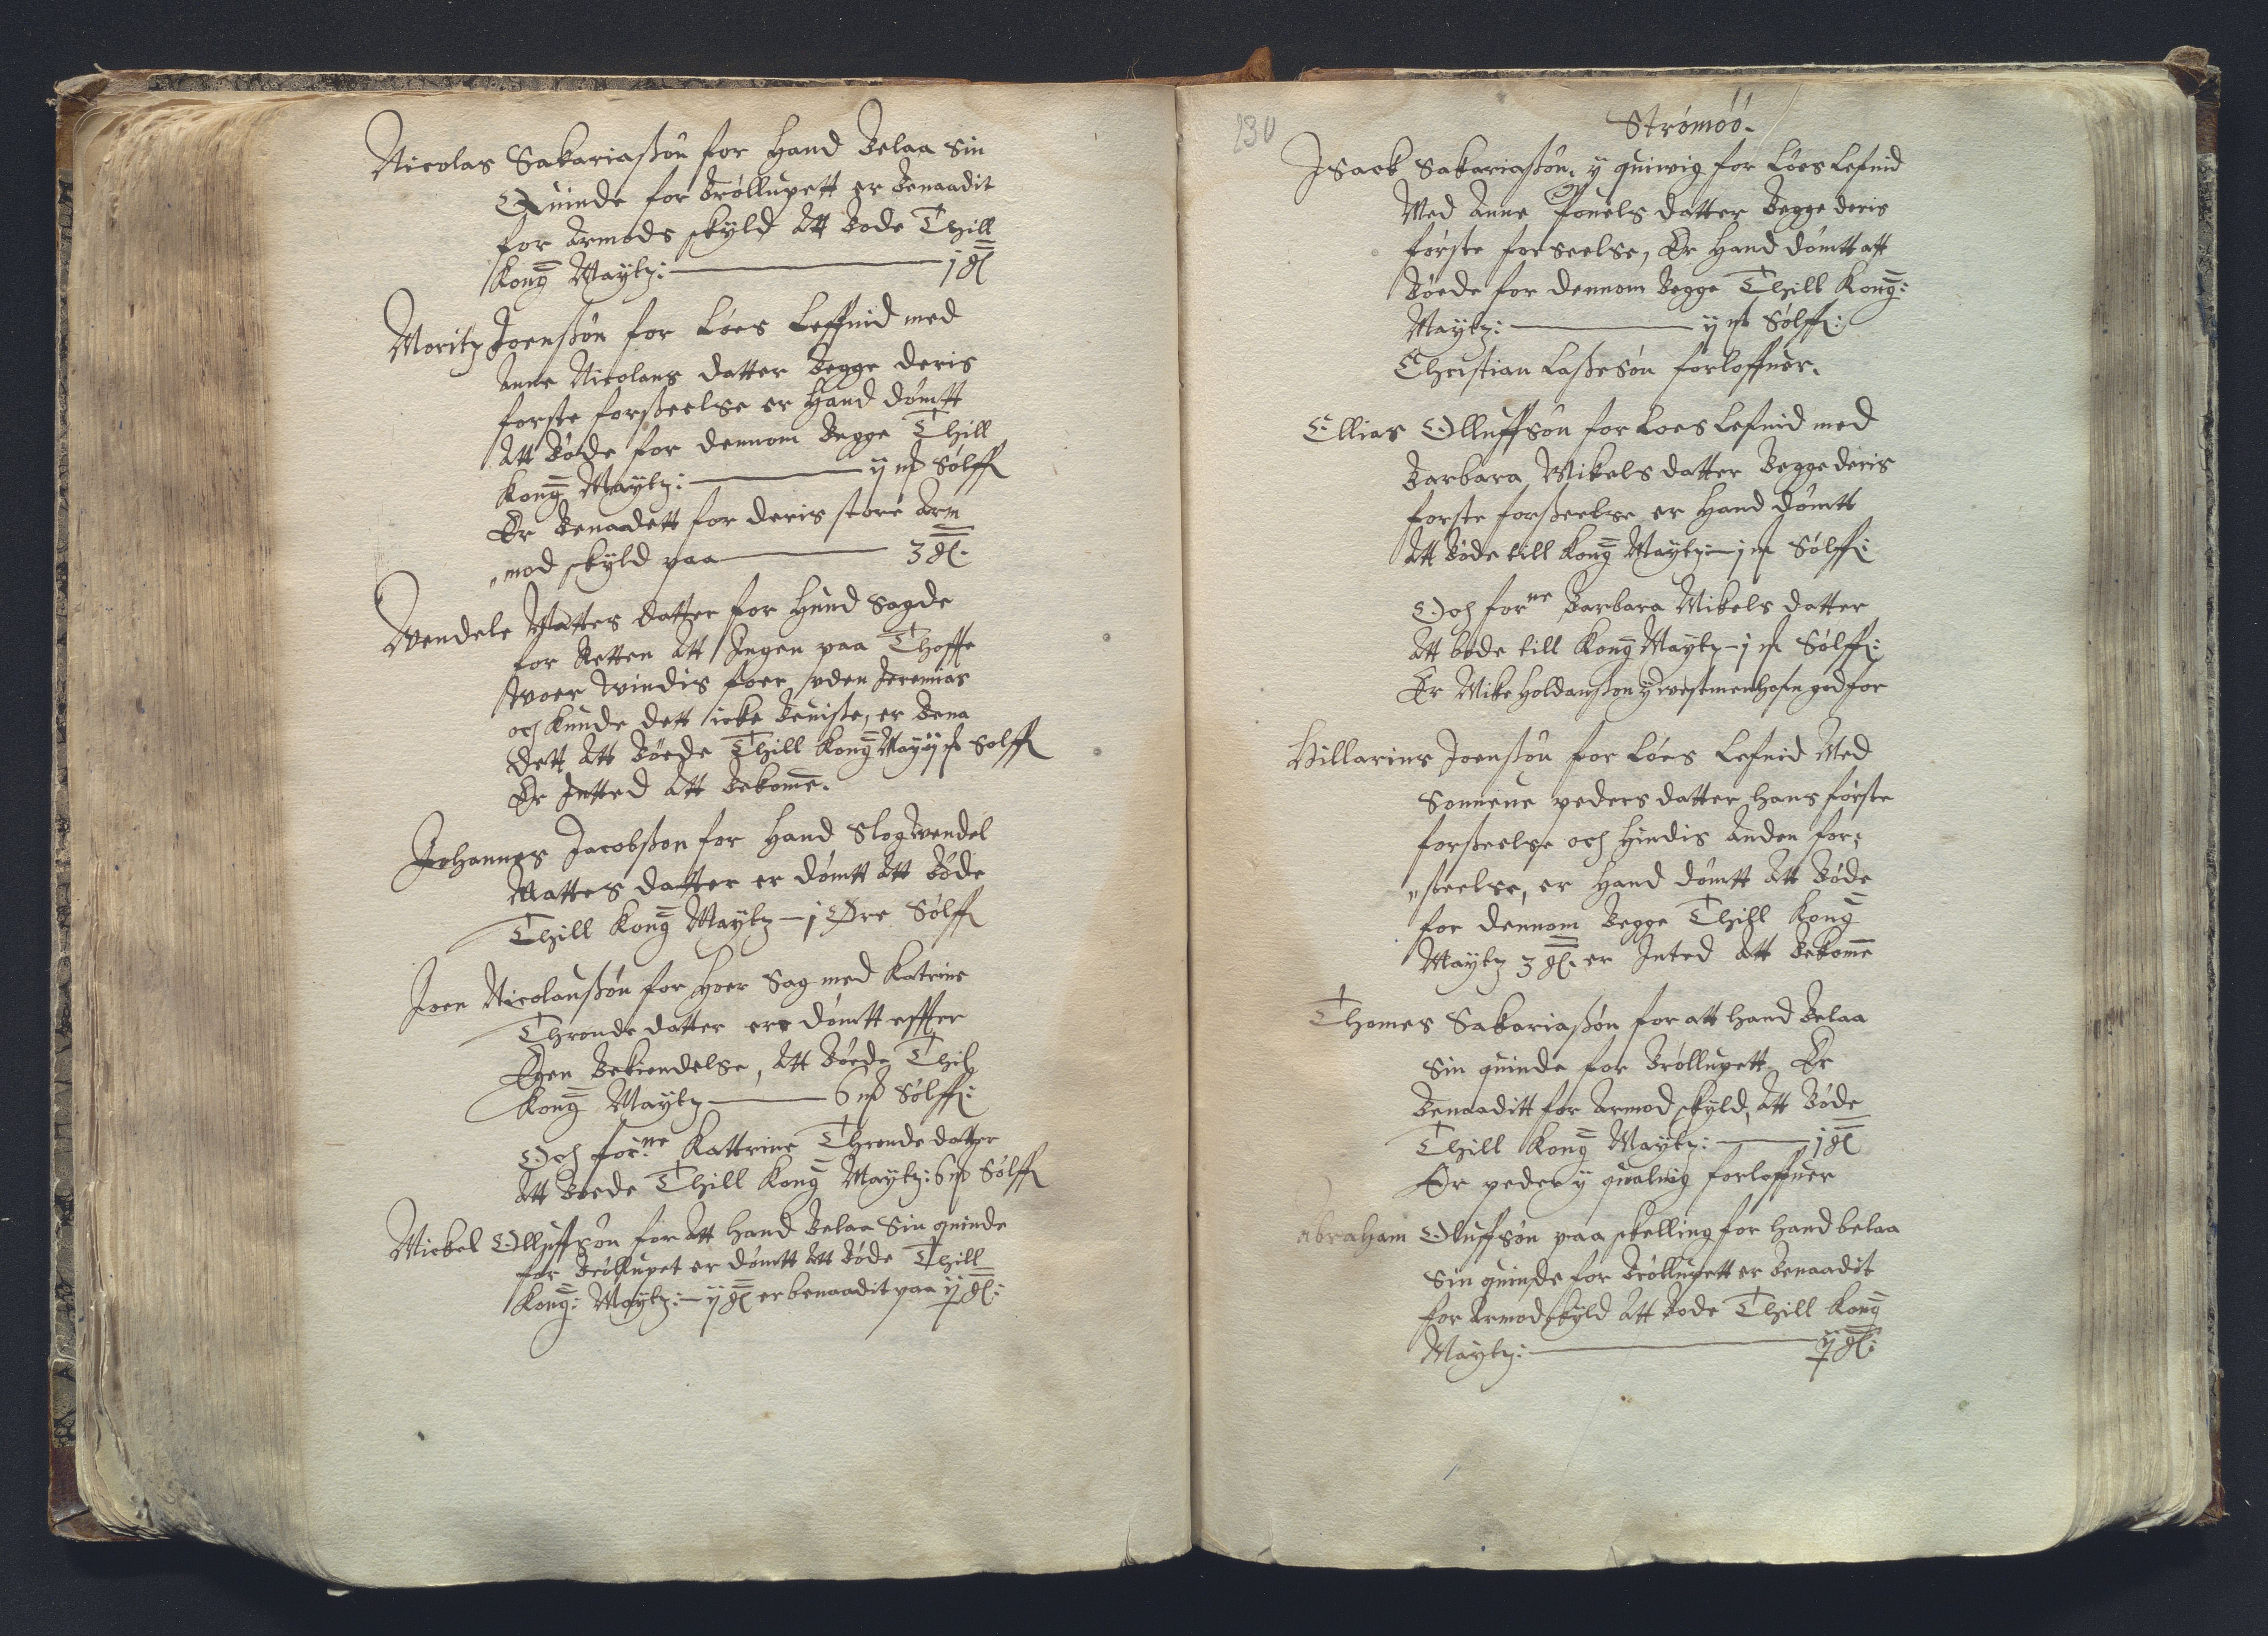 Nicolas Sakariaßön for Hand Belaa Sin
Quinde for Bröllupett er Benaadit
for Armods skyld Att Bode Thill
Kong Maytz: — j gl
Moritz Joensön for Löes Leffnid med
Anne Nicolaus datter Begge deris
forste forßeelse er Hand dömtt
Att Böde for dennom Begge Thill
Kong Maytz: — ij mk Sölff
Er Benaadett for deris store Arm
mod skyld paa — 3 gl.
Wendele Mattes datter for Hund Sagde
for Retten Att Ingen paa Thoffte
woer windis foer uden Jeremias
och kunde dett icke Beuiße, er Bena
dett Att Böede Thill Kong May ij mk Sölff
Er Intted Att Bekomme.
Johannes Jacobßon for Hand Slog Wendel
Mattes datter er dömtt Att Böde
Thill Kong Maytz — j Øre Sölff
Joen Nicolausßön for Hoer Sag med Katrine
Thronde datter ere dömtt effter
Egen Bekiendelse, Att Böede Thil
Kong Maytz — 6 mk Sölff:
Och forne Kattrine Thronde datter
Att Böede Thill Kong Maytz: 6 mk Sölff
Mickel Olluffsön for Att Hand Belaa Sin quinde
for Bröllupet er dömtt Att Böde Thill
Kong: Maytz: — ij gl er benaadit paa ij gl:
130
Strömöö.
Isack Sakariaßön, y quiwig for Löes Lefnid
Med Anne Pouels datter Begge deris
förste forseelse, Er Hand dömtt att
Böede for dennom Begge Thill Kong:
Maytz: — ij mk Sölff:
Christian Laßesön forloffuer.
Ellias Olluffsön for Loes Lefnid med
Barbara Mikels datter Begge deris
forste forßeelse er Hand dömtt
Att Böde till Kong Maytz — j mk Sölff:
Och forne Barbara Mikels datter
Att böde till Kong Maytz — j mk Sölff:
Er Mike Holdanßon y westmenhofn god for
Hillarius Joensßön for Löes Lefnid Med
Sonneue peders datter, hans förste
forßeelse och Hindis Anden for,
ßeelse, er Hand dömtt Att Böde
for dennom Begge Thill Kong
Maytz 3 gl. er Inted Att Bekomme
Thomes Sakariaßön for att hand Belaa
Sin quinde for Bröllupett Er
Benaaditt for Armod skyld, Att Böde
Thill Kong Maytz: — j gl
Er peder y qualuig forloffuer
Abraham Oluffsön paa skelling for hand belaa
Sin quinde for Bröllupett er Benaadit
for Armod skyld Att Bode Thill Kong
Maytz: — ij gl: